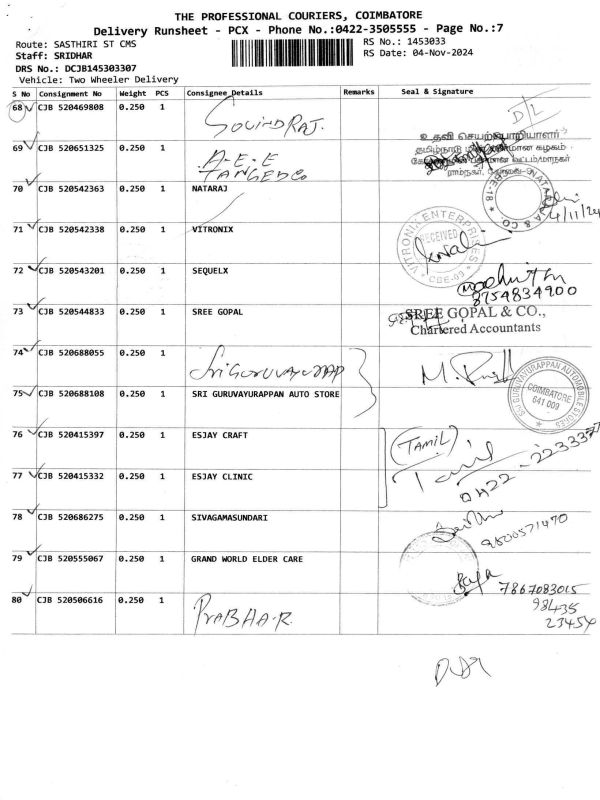 THE PROFESSIONAL COURIERS, COIMBATORE
Delivery Runsheet - PCX - Phone No.:0422-3505555 - Page No.:7
Route: SASTHIRI ST CMS RS No.: 1453033
Staff: SRIDHAR RS Date: 04-Nov-2024
DRS No.: DCJB145303307
Vehicle: Two Wheeler Delivery
S No Consignment No Weight PCS Consignee Details Remarks Seal & Signature
68 CJB 520469808 0.250 1 GOVINDRAJ. D/L
69 CJB 520651325 0.250 1 A-E-E TANGEDCO உதவி செயற்பொறியாளர்
70 CJB 520542363 0.250 1 NATARAJ 4/11/24
71 CJB 520542338 0.250 1 VITRONIX VITRONIX ENTERPRISES RECEIVED CBE-09
72 CJB 520543201 0.250 1 SEQUELX 8754834900
73 CJB 520544833 0.250 1 SREE GOPAL SREE GOPAL & CO.,
Chartered Accountants
74 CJB 520688055 0.250 1 Sri GURUVAYURAPP
75 CJB 520688108 0.250 1 SRI GURUVAYURAPPAN AUTO STORE SRI GURUVAYURAPPAN AUTOMOBILE STORES COIMBATORE 641 009
76 CJB 520415397 0.250 1 ESJAY CRAFT (TAMIL)
77 CJB 520415332 0.250 1 ESJAY CLINIC
78 CJB 520686275 0.250 1 SIVAGAMASUNDARI 9500571470
79 CJB 520555067 0.250 1 GRAND WORLD ELDER CARE 7867083015
80 CJB 520506616 0.250 1 PRABHA.R. 98435
23454